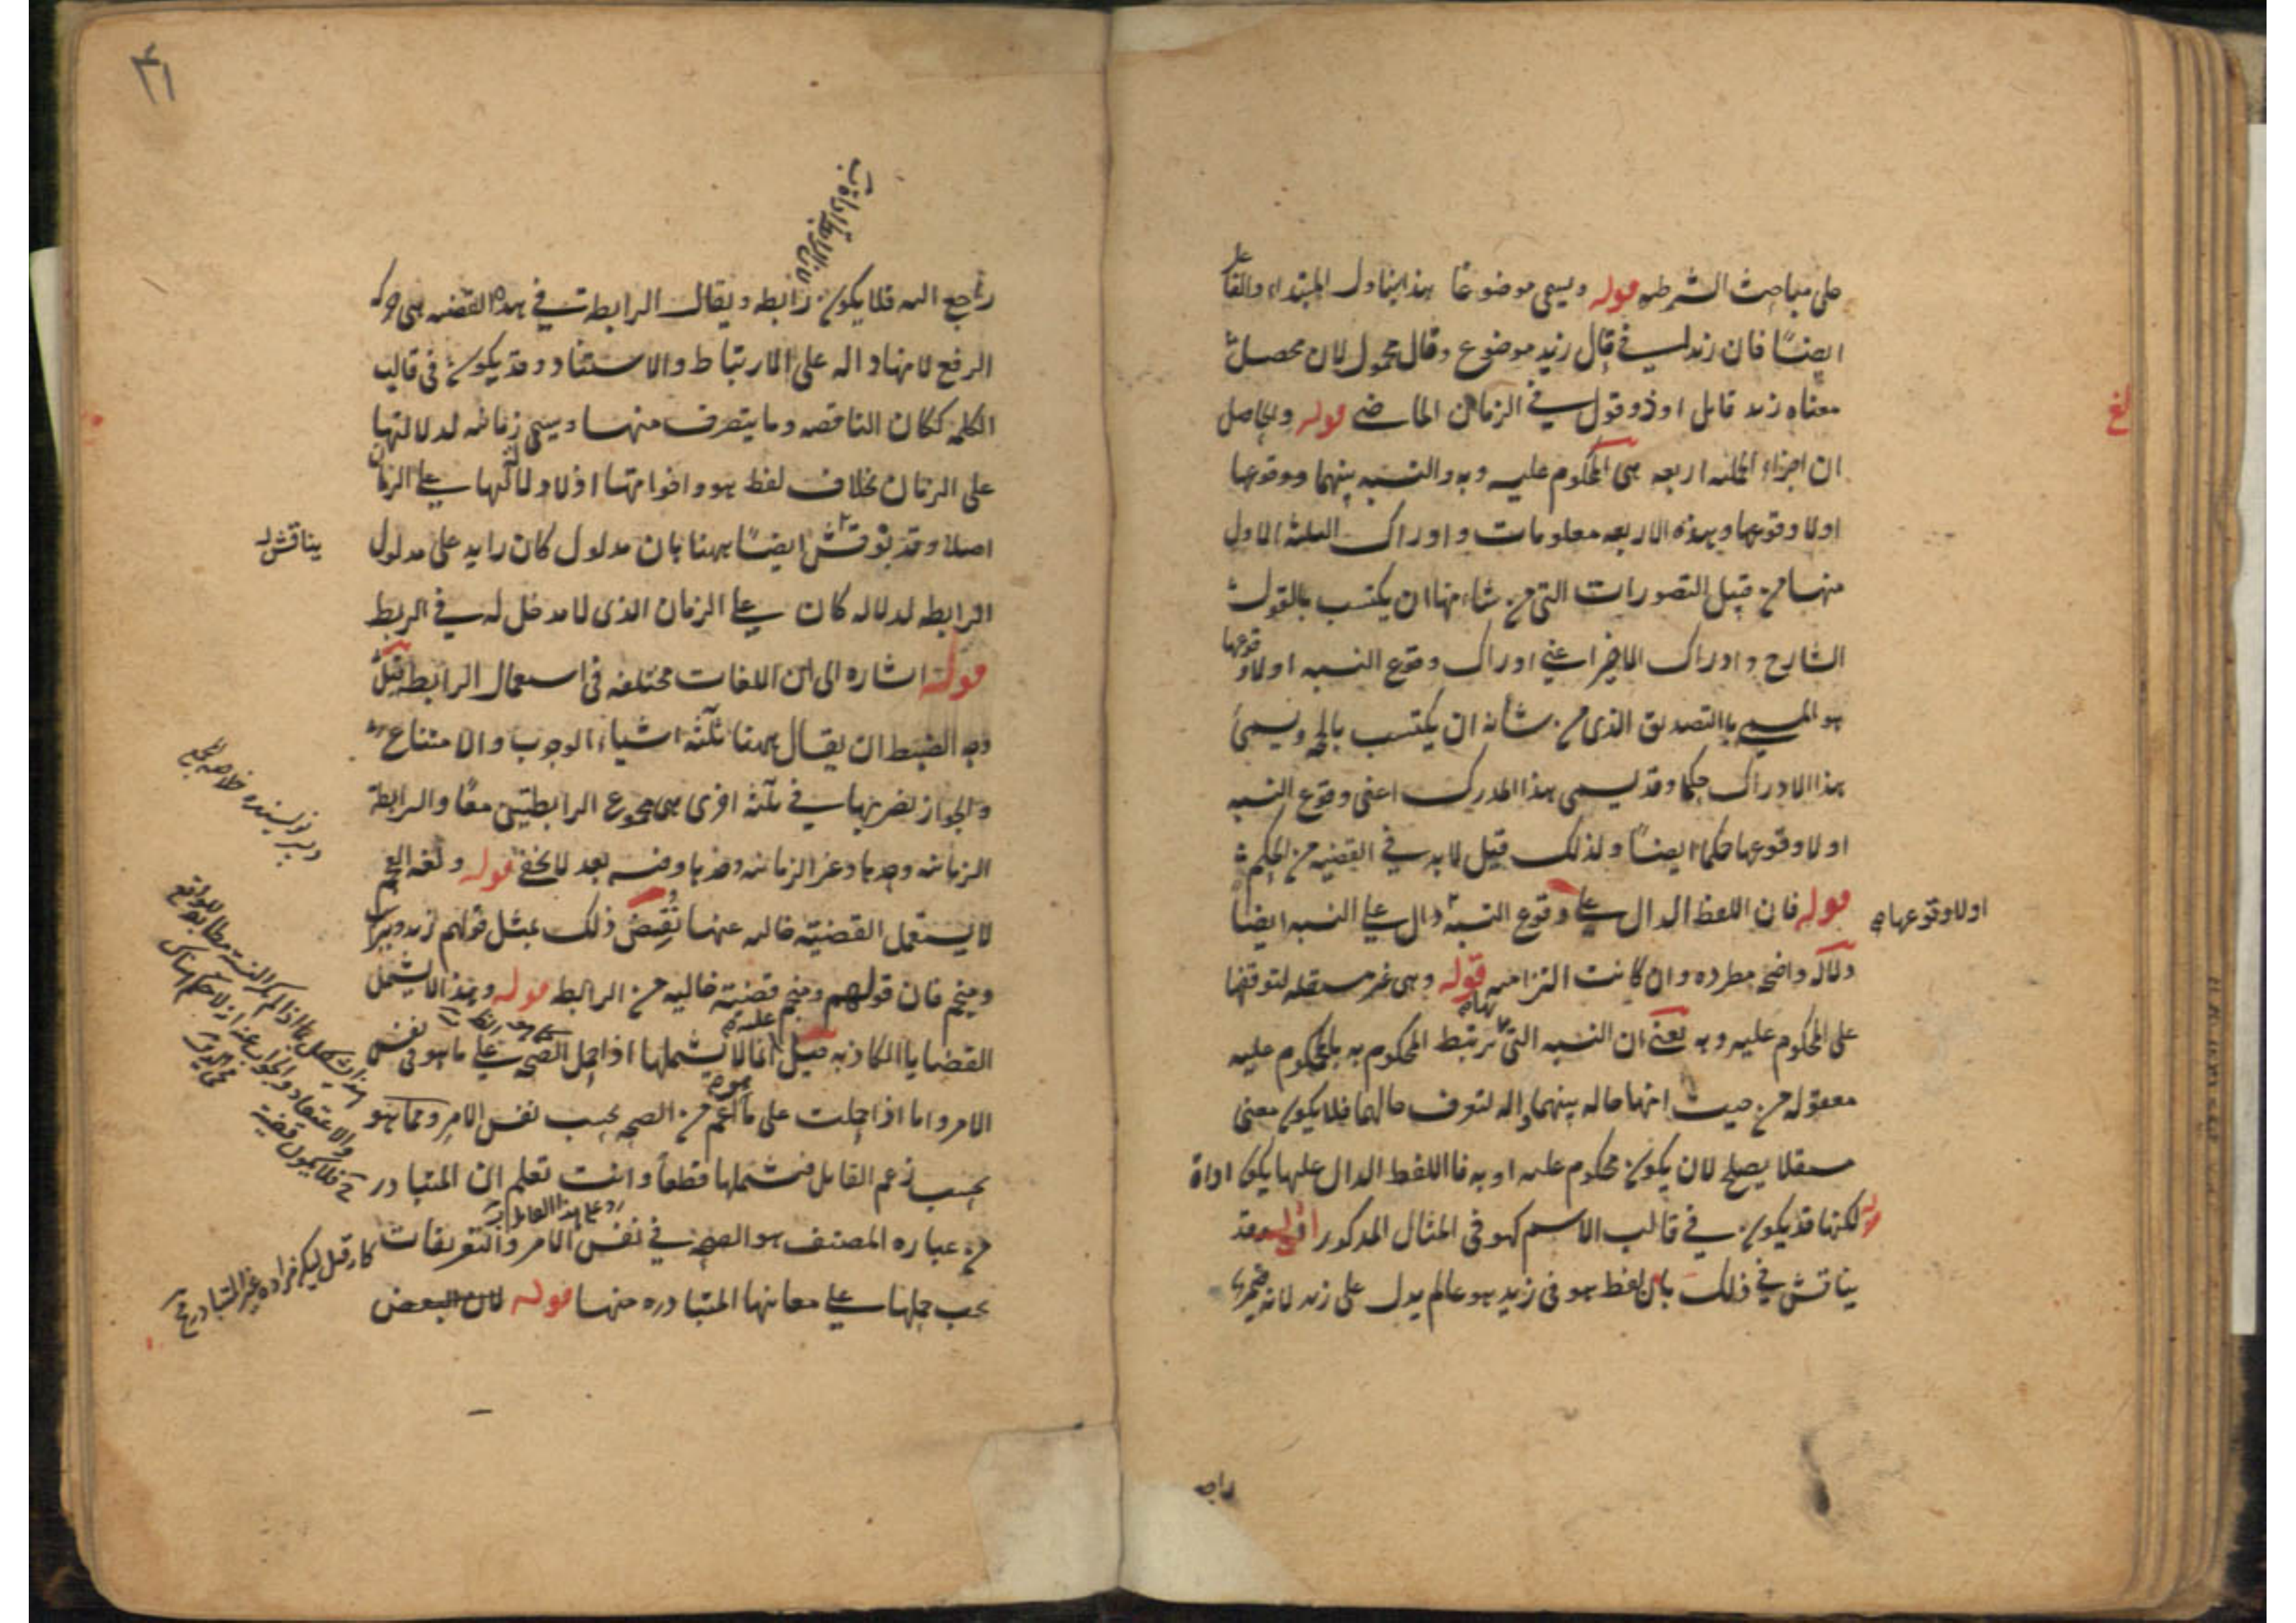 على مباحث الشرطيه قوله ويسمى موضوعا هذا يتناول المبتداء والفاعل
ايضًا فان زيد في قال زيد موضوع وقال محمول لان محصل
معناه زيد قايل او ذو قول في الزمان الماضي قوله والحاصل
ان اجزاء الحمليه اربعه هي المحكوم عليه وبه والنسبه بينهما ووقوعها
اولا وقوعها وهذه الاربعه معلومات وادراك الثلثه الاول
منها من قبيل التصورات التي من شانها ان يكتسب بالقول
الشارح وادراك الاخير اعني ادراك وقوع النسبه اولا وقوعها
هو المسمى بالتصديق الذي من شأنه ان يكتسب بالحجه ويسمى
هذا الادراك حكما وقد يسمى هذا المدرك اعنى وقوع النسبه
اولا وقوعها حكما ايضًا ولذلك قيل لا بد في القضيه من الحكم
قوله فان اللفظ الدال على وقوع النسبة دال على النسبه ايضاً
اولا وقوعها صح
دلاله واضحه مطرده وان كانت التزاميه قوله وهي غير مستقله لتوقفها
على المحكوم عليه وبه يعني ان النسبه التي بها يرتبط المحكوم به بالمحكوم عليه
معقوله من حيث انها حاله بينهما واله لتعرف حالهما فلا يكون معنى
مستقلا يصلح لان يكون محكوم عليه او به فاللفظ الدال عليها يكون اداة
قوله لكنها قد يكون في قالب الاسم كهو في المثال المذكور اقول وقد
يناقش في ذلك بان لفظ هو في زيد هو عالم يدل على زيد لانه ضمير
راجع
٤١
راجع اليه فلا يكون رابطه ويقال الرابطة في هذه القضيه هي حركه
الرفع لانها داله على الارتباط والاستناد وقد يكون في قالب
الكلمه ككان الناقصه وما يتصرف منها ويسمى زمانيه لدلالتها
على الزمان بخلاف لفظ هو واخواتها اذ لا دلاله لها على الزمان
اصلا وقد نوقش ايضًا ههنا بان مدلول كان زايد على مدلول
يناقش
الرابطه لدلاله كان على الزمان الذي لا مدخل له في الربط
قوله اشاره الى ان اللغات مختلفه في استعمال الرابطه قيل
وجه الضبط ان يقال ههنا ثلثه اشياء الوجوب والامتناع
والجواز نضربها في ثلثه اخرى هي مجموع الرابطتين معًا والرابطة
الزمانيه وحدها وغير الزمانيه وحدها وفيه بعد لا يخفى قوله ولغه العجم
لا يستعمل القضية خاليه عنها نُقِضَ ذلك بمثل قولهم زيد دبير
ومنجم فان قولهم ومنجم قضية خاليه من الرابطه قوله وهذا لا يشمل
القضايا الكاذبه قيل انما لا يشملها اذا حمل الصحه على ما هو في نفس
الامر واما اذا حملت على ما هو اعم من الصحه بحسب نفس الامر ومما هو
بحسب زعم القايل فيشملها قطعاً وانت تعلم ان المتبادر
من عباره المصنف هو الصحه في نفس الامر والتعريفات
يجب حملها على معانيها المتبادره منها قوله لان البعض